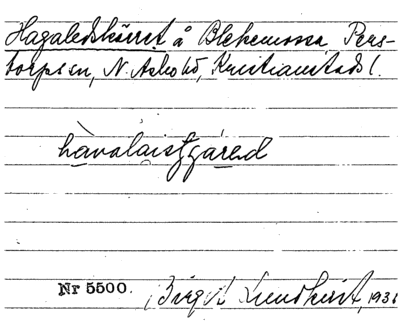 Hagaledskärret å Blekemossa, Pers-
torps sn, N. Åsbo hd, Kristianstads l.
Nr 5500. Birgit Lundkvist, 193